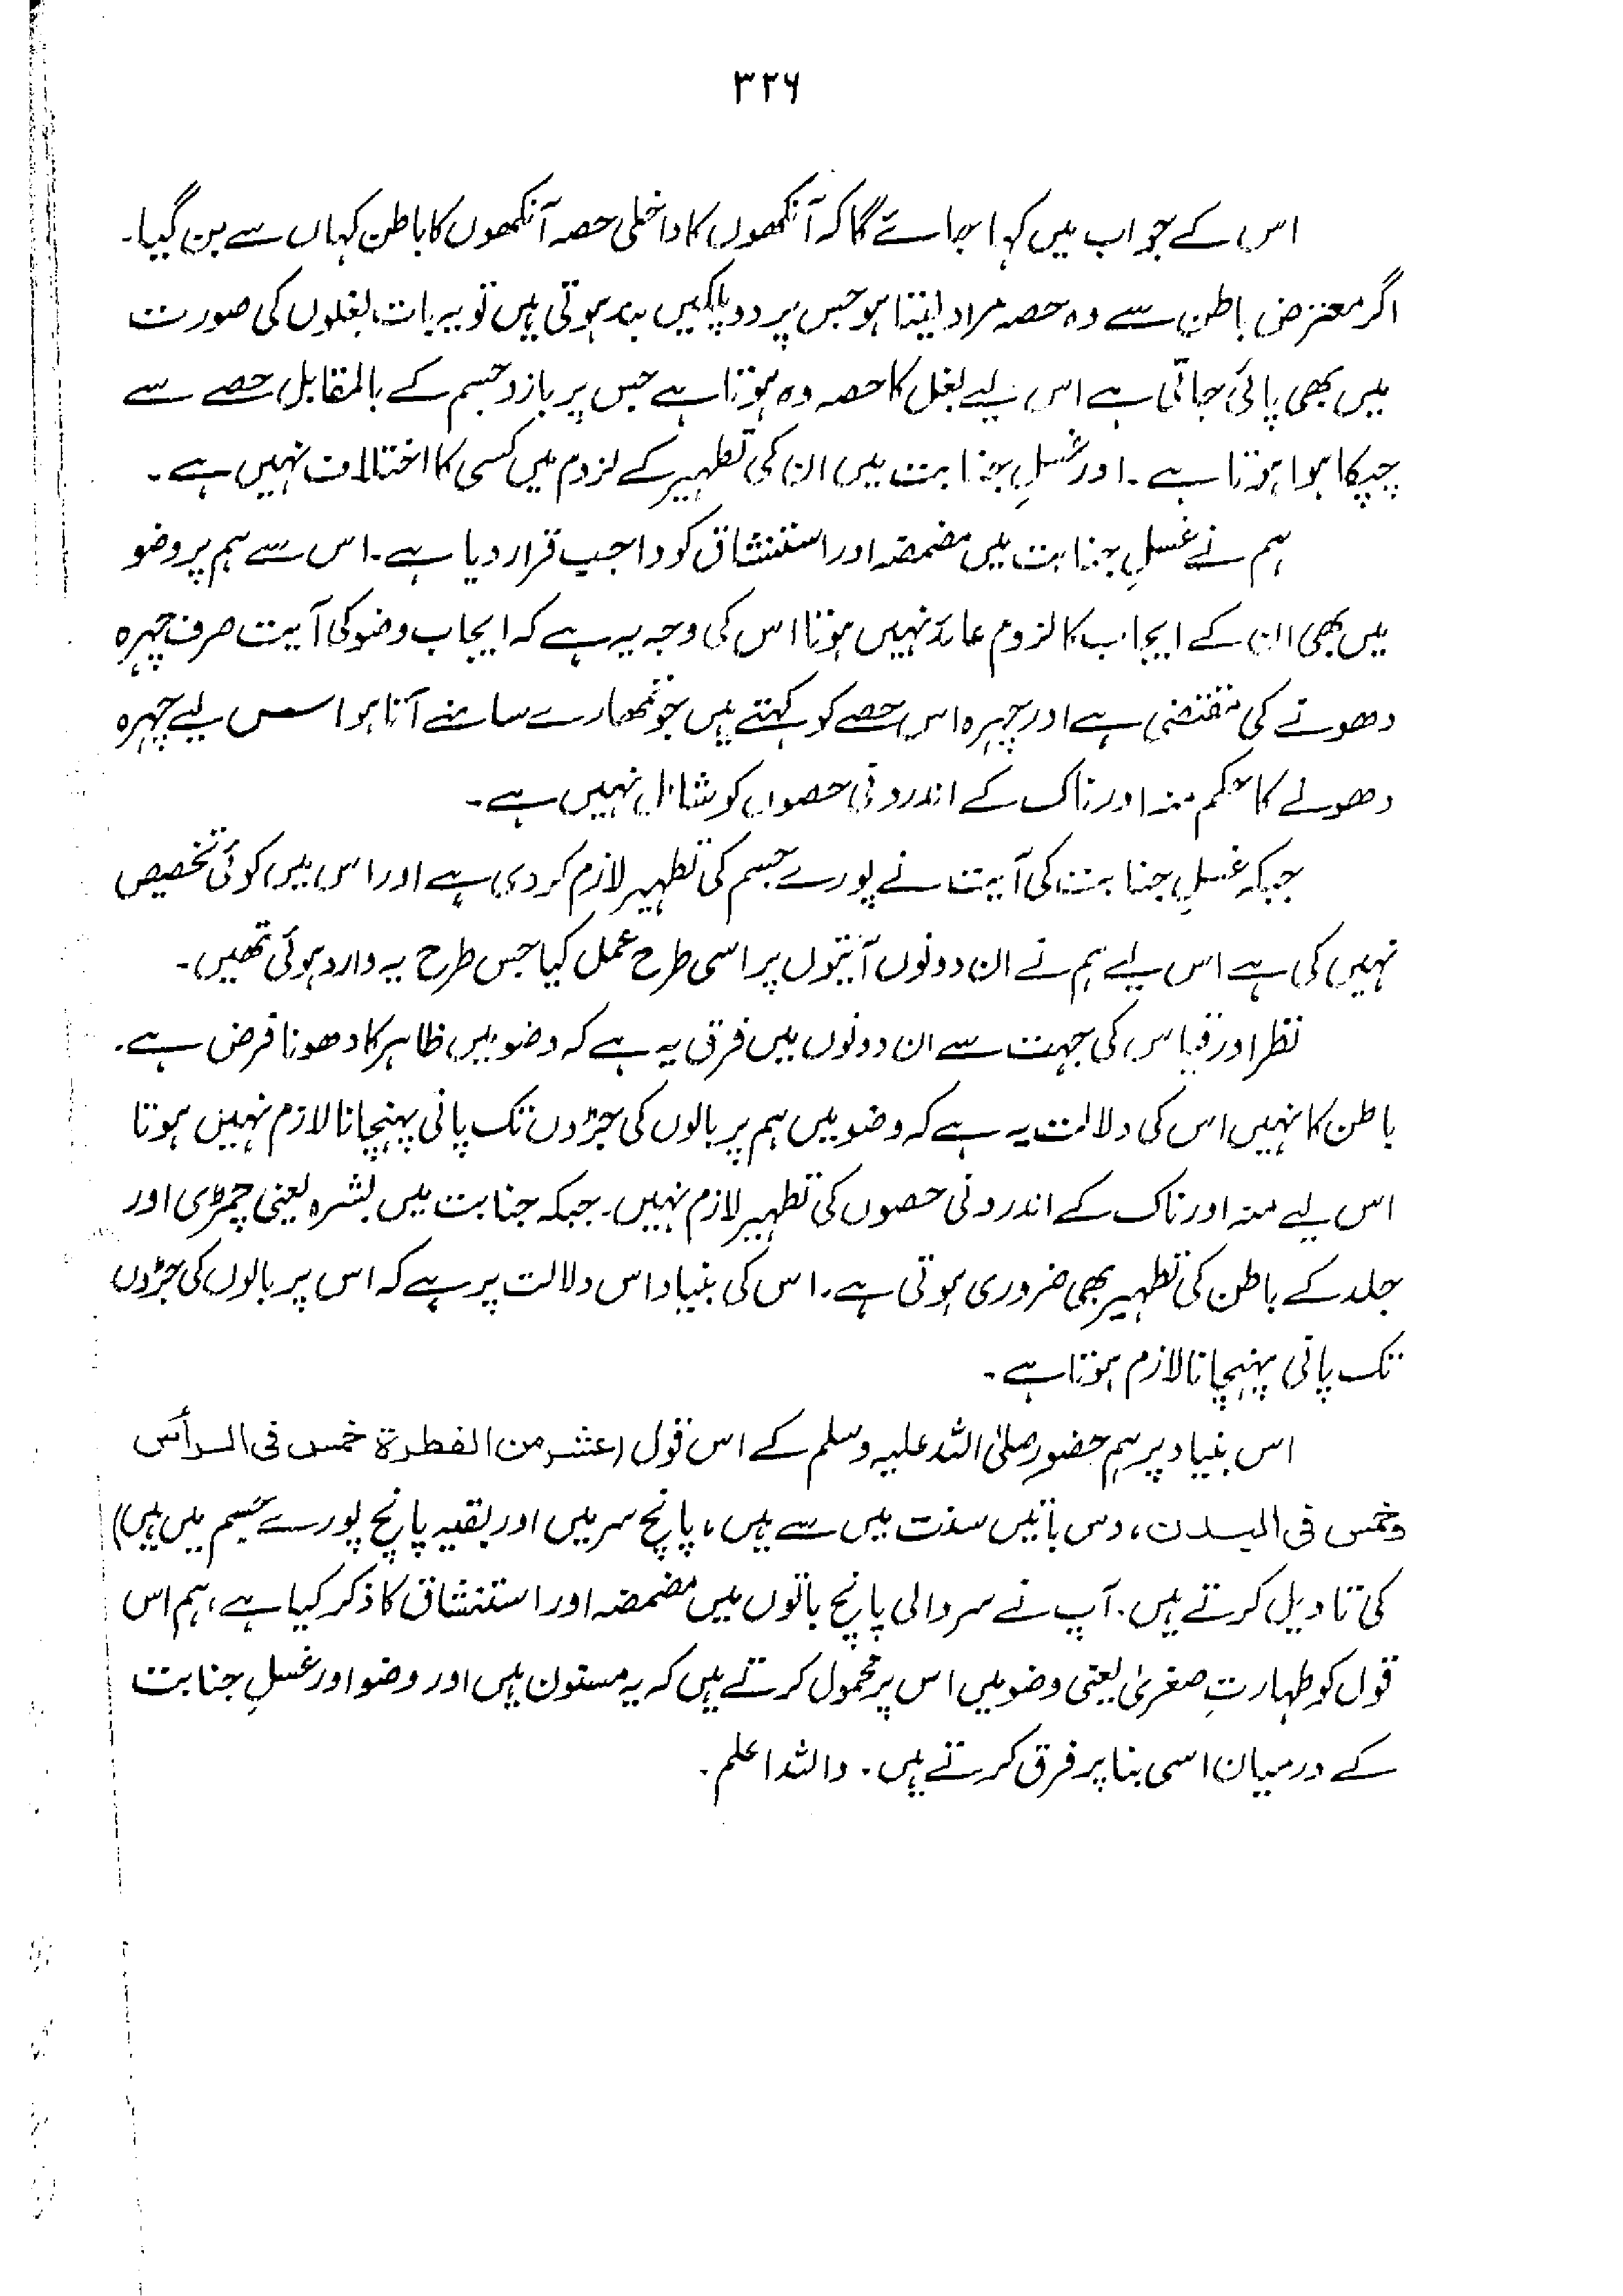 ۳۲۶
اس کے جواب میں کہا جائے گا کہ آنکھوں کا داخلی حصہ آنکھوں کا باطن کہاں سے بن گیا۔
اگر معترض باطن سے وہ حصہ مراد لیتا ہو جس پر دو پلکیں بند ہوتی ہیں تو یہ بات بغلوں کی صورت
میں بھی پائی جاتی ہے اس لیے بغل کا حصہ وہ ہوتا ہے جس پر بازو جسم کے بالمقابل حصے سے
چپکا ہوا ہوتا ہے۔ اور غسلِ جنابت میں ان کی تطہیر کے لزوم میں کسی کا اختلاف نہیں ہے۔
ہم نے غسلِ جنابت میں مضمضہ اور استنشاق کو واجب قرار دیا ہے۔ اس سے ہم پر وضو
میں بھی ان کے ایجاب کا لزوم عائد نہیں ہوتا اس کی وجہ یہ ہے کہ ایجاب وضو کی آیت صرف چہرہ
دھونے کی مقتضی ہے اور چہرہ اس حصے کو کہتے ہیں جو تمھارے سامنے آتا ہو اس لیے چہرہ
دھونے کا حکم منہ اور ناک کے اندرونی حصوں کو شامل نہیں ہے۔
جبکہ غسلِ جنابت کی آیت نے پورے جسم کی تطہیر لازم کر دی ہے اور اس میں کوئی تخصیص
نہیں کی ہے اس لیے ہم نے ان دونوں آیتوں پر اسی طرح عمل کیا جس طرح یہ وارد ہوئی تھیں۔
نظر اور قیاس کی جہت سے ان دونوں میں فرق یہ ہے کہ وضو میں ظاہر کا دھونا فرض ہے۔
باطن کا نہیں اس کی دلالت یہ ہے کہ وضو میں ہم پر بالوں کی جڑوں تک پانی پہنچانا لازم نہیں ہوتا
اس لیے منہ اور ناک کے اندرونی حصوں کی تطہیر لازم نہیں۔ جبکہ جنابت میں بشرہ یعنی چمڑی اور
جلد کے باطن کی تطہیر بھی ضروری ہوتی ہے۔ اس کی بنیاد اس دلالت پر ہے کہ اس پر بالوں کی جڑوں
تک پانی پہنچانا لازم ہوتا ہے۔
اس بنیاد پر ہم حضور صلی اللہ علیہ وسلم کے اس قول (عشر من الفطرة خمس فی الرأس
وخمس فی البدن، دس باتیں سنت میں سے ہیں، پانچ سر میں اور بقیہ پانچ پورے جسم میں ہیں)
کی تاویل کرتے ہیں۔ آپ نے سر والی پانچ باتوں میں مضمضہ اور استنشاق کا ذکر کیا ہے، ہم اس
قول کو طہارتِ صغریٰ یعنی وضو میں اس پر محمول کرتے ہیں کہ یہ مسنون ہیں اور وضو اور غسلِ جنابت
کے درمیان اسی بنا پر فرق کرتے ہیں۔ واللہ اعلم۔